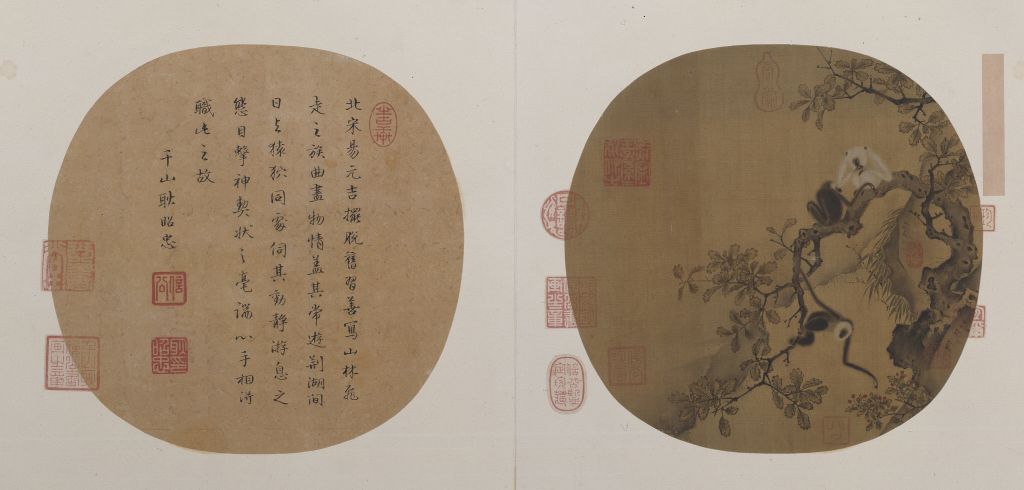 北宋易元吉擺脫舊習善寫山林飛
走之族曲盡物情蓋其常遊荊湖間
日与猿狖同處伺其動靜游息之
態目擊神契狀之毫端心手相得
職此之故
千山耿昭忠
信公